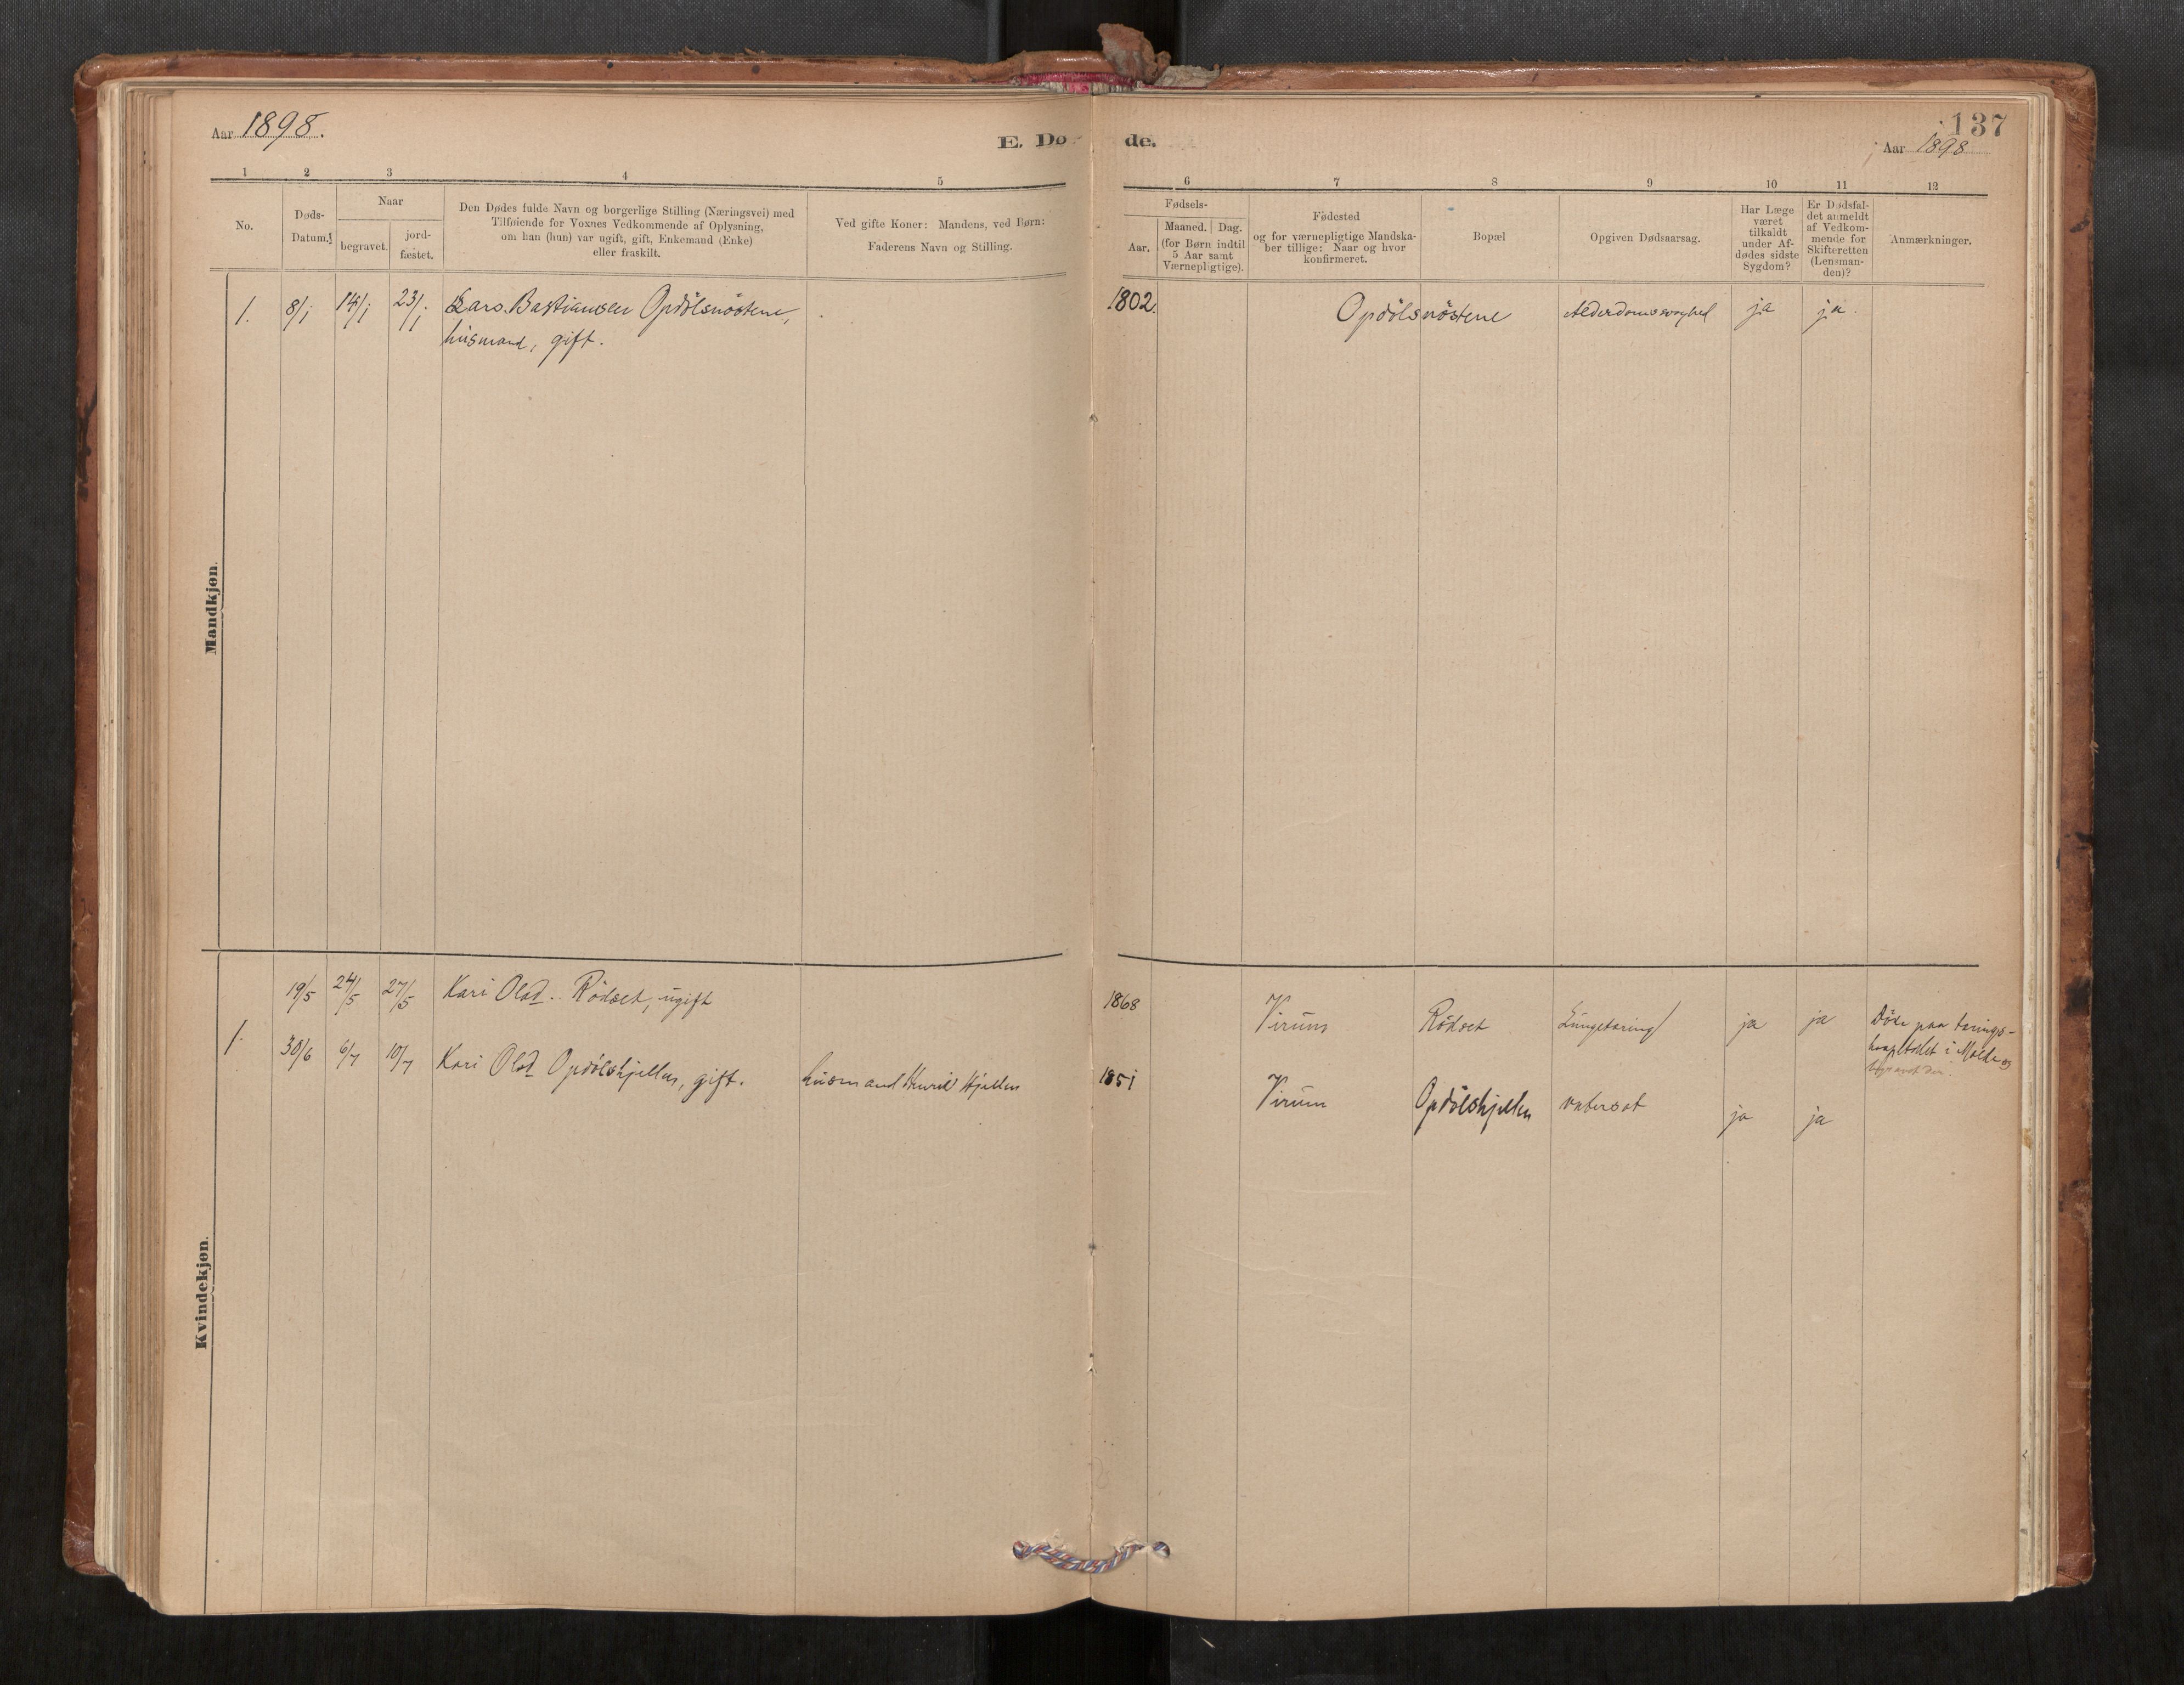 Aar 1898.
E. Dø
1
2
3
4
5
No.
Døds-
Datum.
Naar
begravet.
jord-
fæstet.
Den Dødes fulde Navn og borgerlige Stilling (Næringsvei) med
Tilføiende for Voxnes Vedkommende af Oplysning,
om han (hun) var ugift, gift, Enkemand (Enke)
eller fraskilt.
Ved gifte Koner: Mandens, ved Børn:
Faderens Navn og Stilling.
Mandkjøn.
1. 8/1 14/1 23/1 Lars Bastiansen Opdölsnöstene,
husmand, gift.
Kvindekjøn.
19/5 24/5 27/5 Kari Olsd. Rödset, ugift
1. 30/6 6/7 10/7 Kari Olsd Opdölshjellen, gift. husmand Henrik Hjellen
137
de.
Aar 1898
6
7
8
9
10
11
12
Fødsels-
Aar.
Maaned. Dag.
(for Børn indtil
5 Aar samt
Værnepligtige).
Fødested
og for værnepligtige Mandska-
ber tillige: Naar og hvor
konfirmeret.
Bopæl
Opgiven Dødsaarsag.
Har Læge
været
tilkaldt
under Af-
dødes sidste
Sygdom?
Er Dødsfal-
det anmeldt
af Vedkom-
mende for
Skifteretten
(Lensman-
den)?
Anmærkninger.
1802. Opdölsnöstene Alderdomssvaghed ja ja.
1868 Virum Rödset Lungetæring ja ja Döde paa tærings-
hospitalet i Molde og
begravet der.
1851 Virum Opdölshjellen ja ja